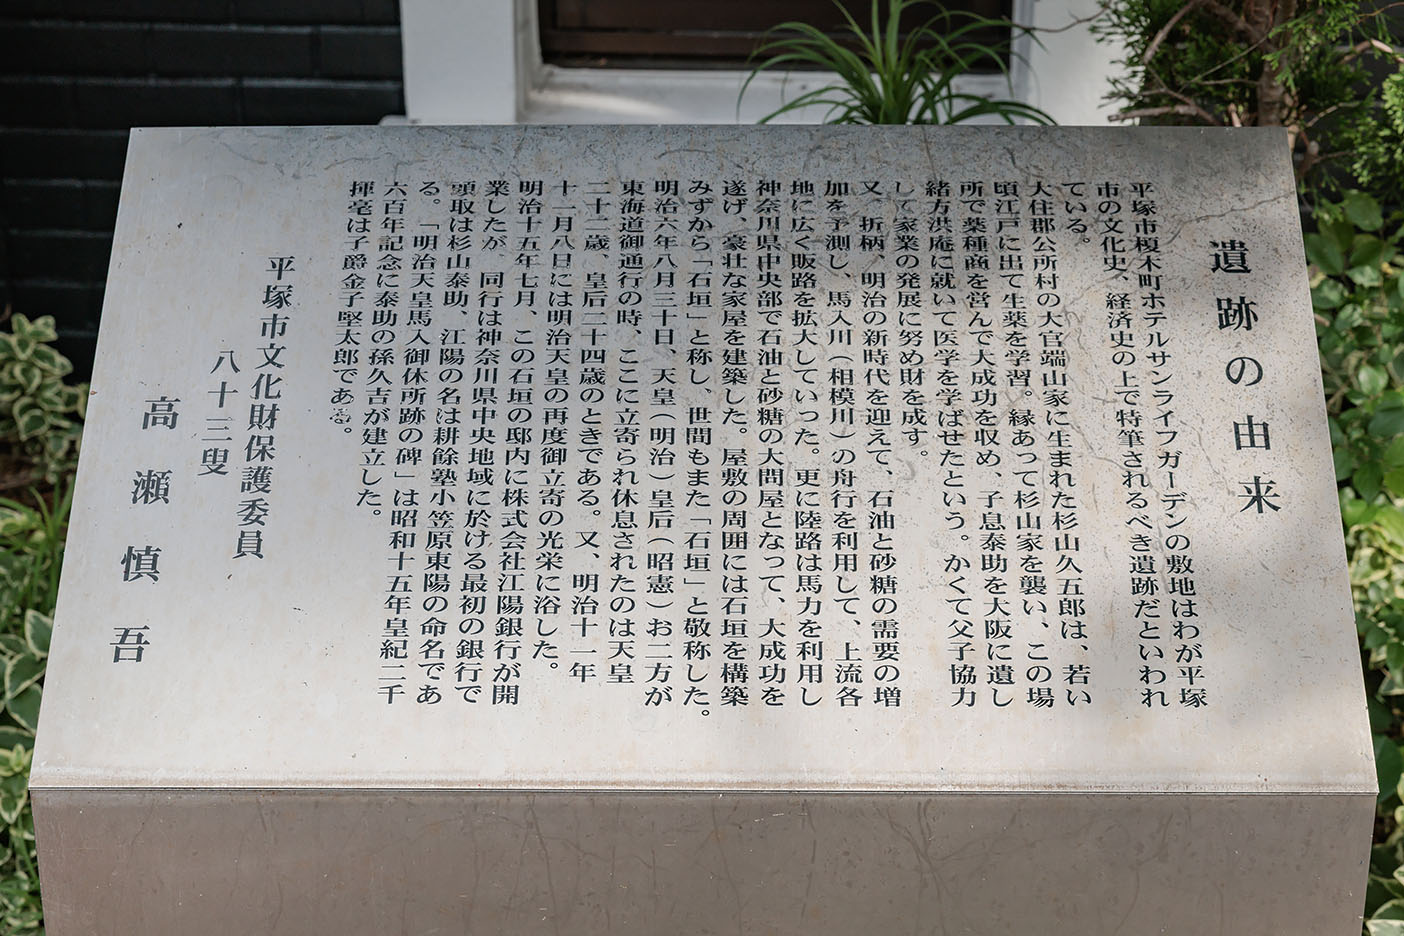 遺跡の由来
平塚市榎木町ホテルサンライフガーデンの敷地はわが平塚
市の文化史、経済史の上で特筆されるべき遺跡だといわれ
ている。
大住郡公所村の大官端山家に生まれた杉山久五郎は、若い
頃江戸に出て生薬を学習。縁あって杉山家を襲い、この場
所で薬種商を営んで大成功を収め、子息泰助を大阪に遺し
緒方洪庵に就いて医学を学ばせたという。かくて父子協力
して家業の発展に努め財を成す。
又、折柄、明治の新時代を迎えて、石油と砂糖の需要の増
加を予測し、馬入川（相模川）の舟行を利用して、上流各
地に広く販路を拡大していった。更に陸路は馬力を利用し
神奈川県中央部で石油と砂糖の大問屋となって、大成功を
遂げ、豪壮な家屋を建築した。屋敷の周囲には石垣を構築
みずから「石垣」と称し、世間もまた「石垣」と敬称した。
明治六年八月三十日、天皇（明治）皇后（昭憲）お二方が
東海道御通行の時、ここに立寄られ休息されたのは天皇
二十二歳、皇后二十四歳のときである。又、明治十一年
十一月八日には明治天皇の再度御立寄の光栄に浴した。
明治十五年七月、この石垣の邸内に株式会社江陽銀行が開
業したが、同行は神奈川県中央地域に於ける最初の銀行で
頭取は杉山泰助、江陽の名は耕餘塾小笠原東陽の命名であ
る。「明治天皇馬入御休所跡の碑」は昭和十五年皇紀二千
六百年記念に泰助の孫久吉が建立した。
揮毫は子爵金子堅太郎である。
平塚市文化財保護委員
八十三叟
高瀬慎吾